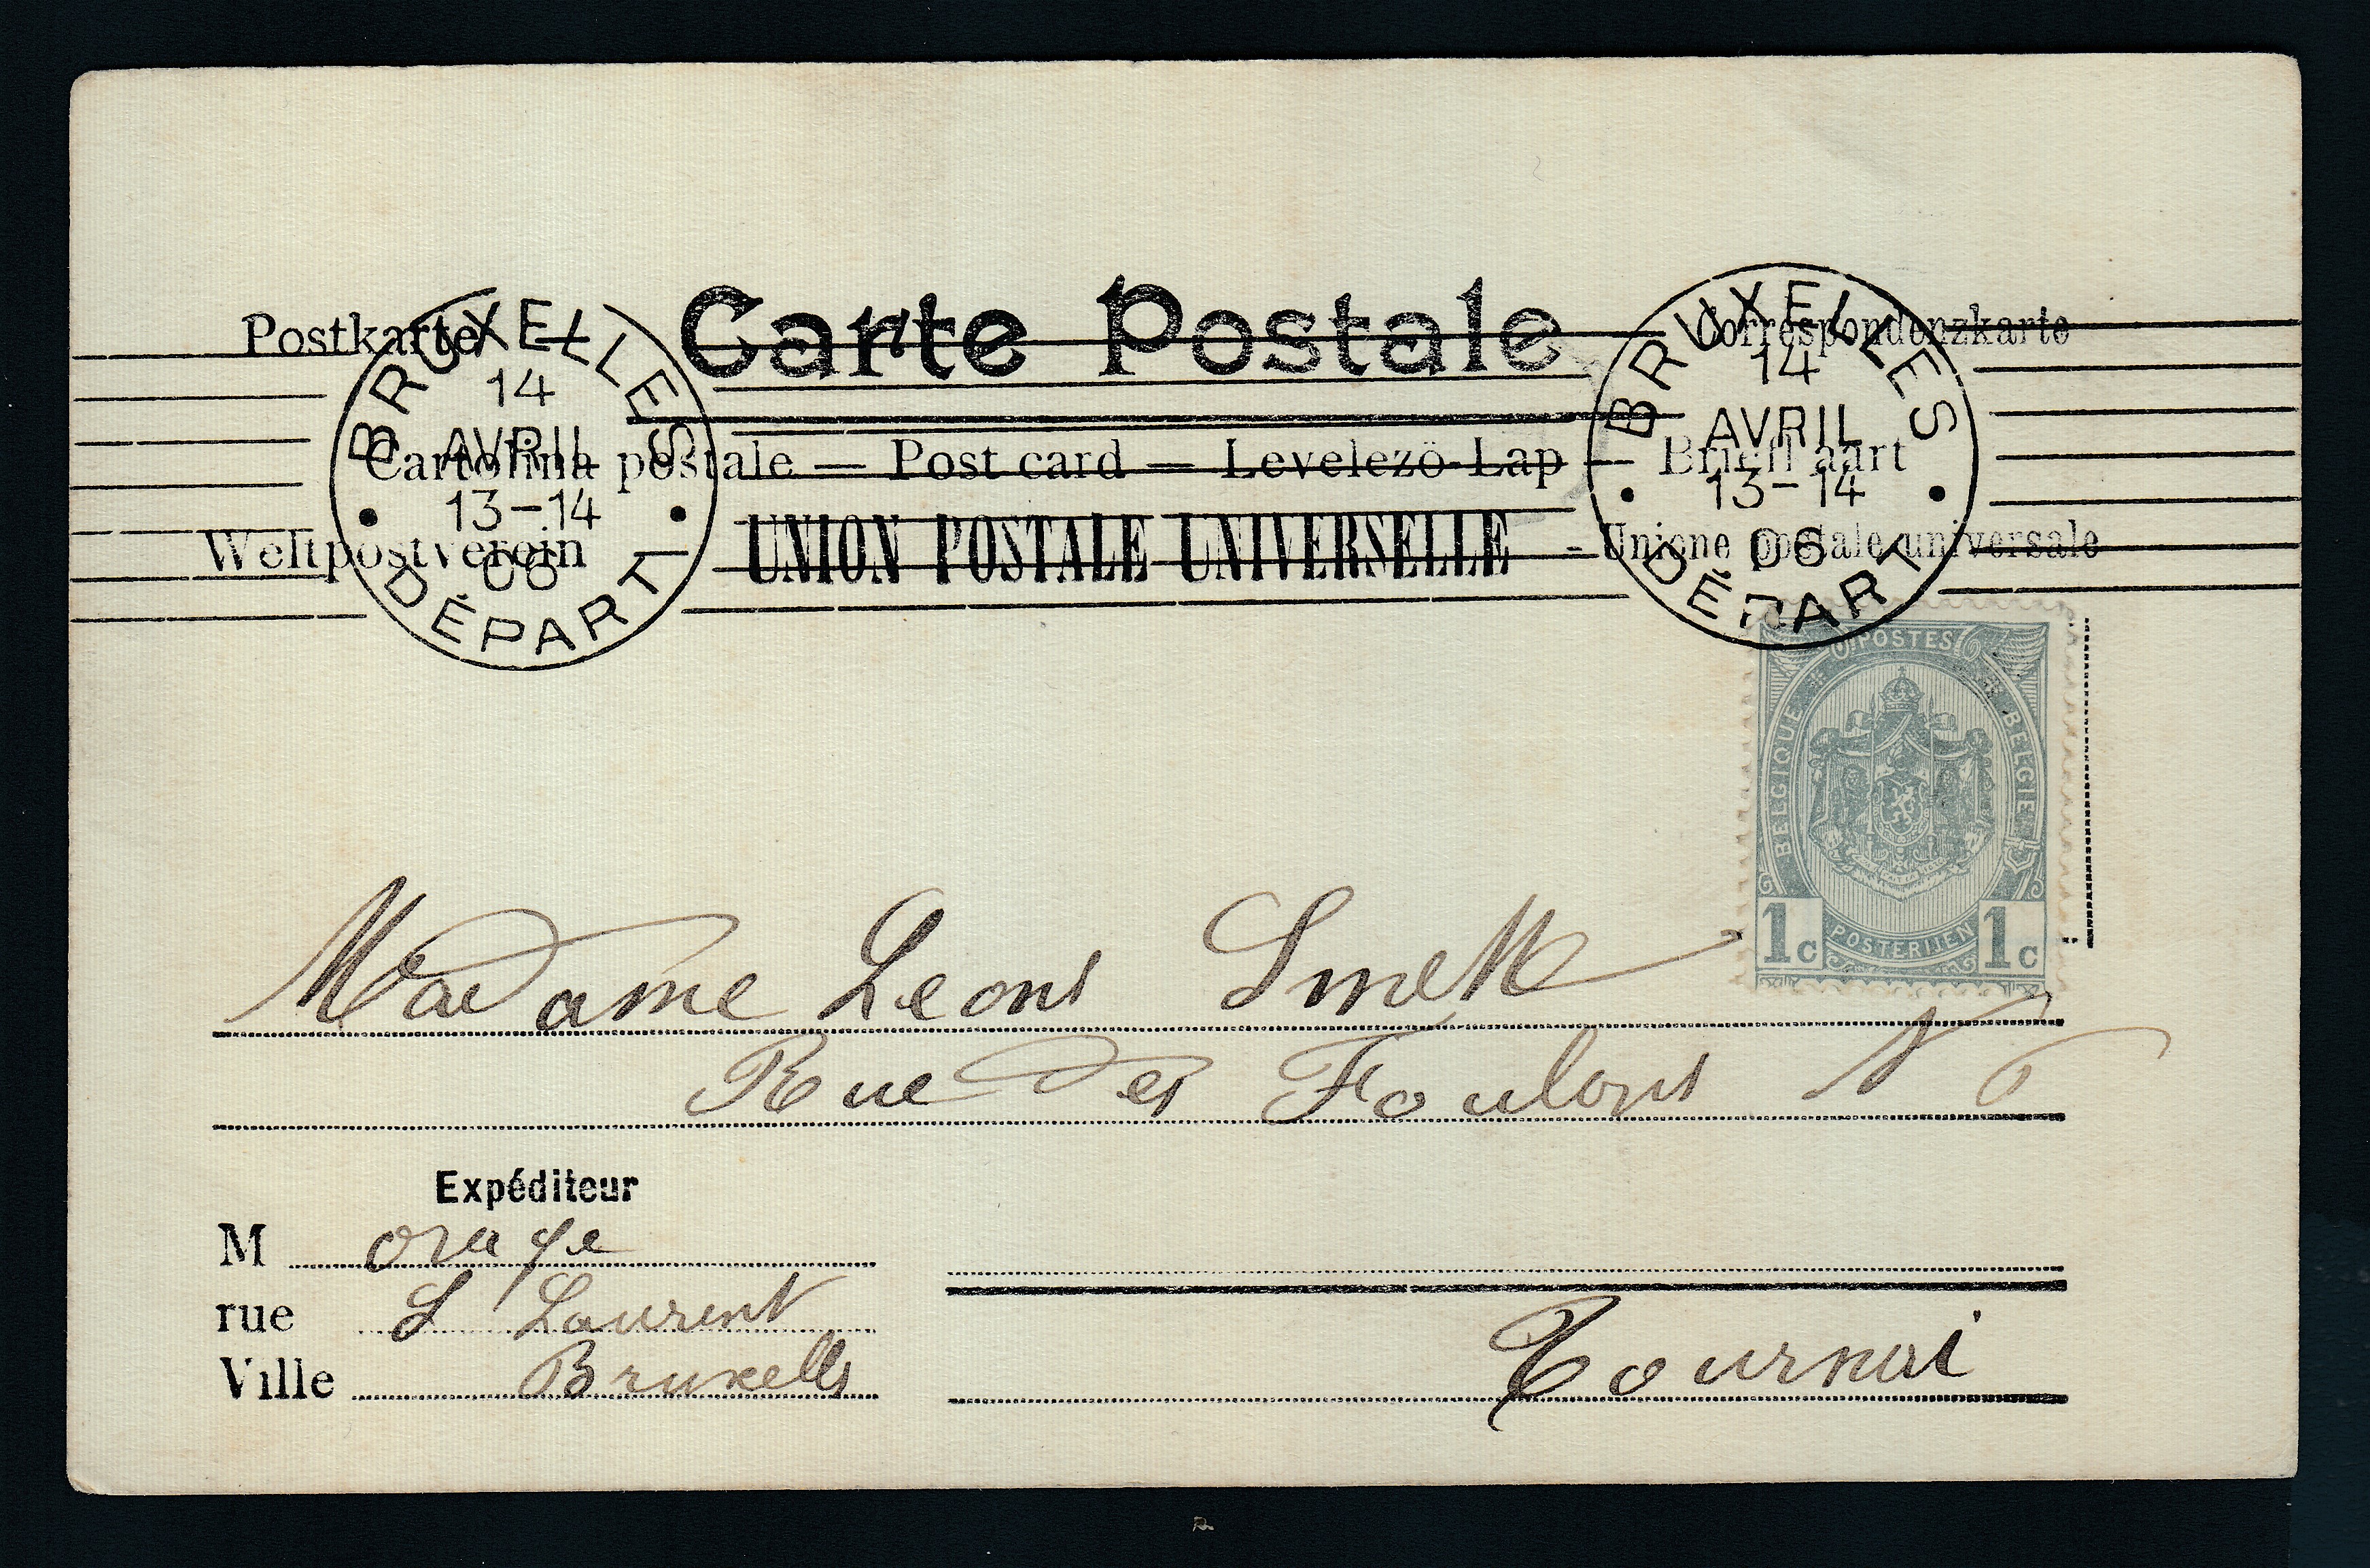 Postkarte — Carte Postale Correspondenzkarte
Cartolina postale — Post card — Levelezö-Lap — Briefkaart
Weltpostverein UNION POSTALE UNIVERSELLE - Unione postale universale
BRUXELLES
14
AVRIL
13-14
DÉPART
BRUXELLES
14
AVRIL
13-14
DÉPART
POSTES
BELGIQUE
BELGIE
1c POSTERIJEN 1c
Madame Leons
Rue des Foulons N
Expéditeur
M
rue S Laurent
Ville Bruxelles
Tournai